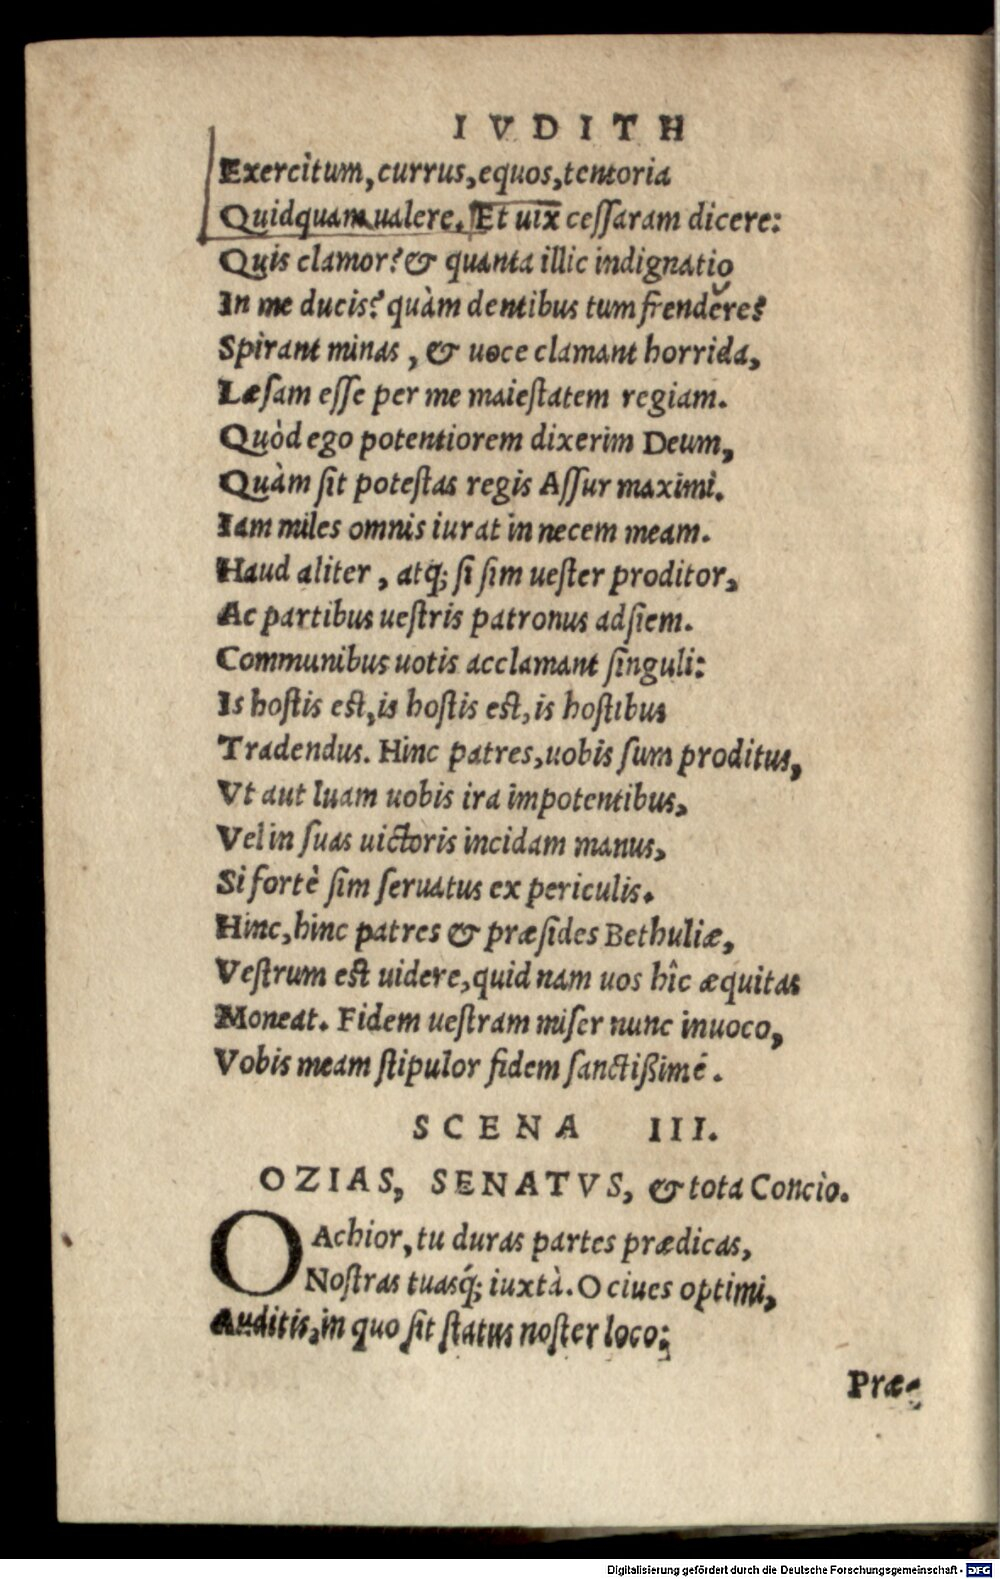 IVDITH
Exercitum, currus, equos, tentoria
Quidquam ualere. Et uix cessaram dicere:
Quis clamor? & quanta illic indignatio
In me ducis? quàm dentibus tum frenderes
Spirant minas, & uoce clamant horrida,
Læsam esse per me maiestatem regiam.
Quòd ego potentiorem dixerim Deum,
Quàm sit potestas regis Assur maximi.
Iam miles omnis iurat in necem meam.
Haud aliter, atq; si sim uester proditor,
Ac partibus uestris patronus adsiem.
Communibus uotis acclamant singuli:
Is hostis est, is hostis est, is hostibus
Tradendus. Hinc patres, uobis sum proditus,
Vt aut luam uobis ira impotentibus,
Vel in suas uictoris incidam manus,
Si fortè sim seruatus ex periculis.
Hinc, hinc patres & præsides Bethuliæ,
Vestrum est uidere, quid nam uos hîc æquitas
Moneat. Fidem uestram miser nunc inuoco,
Vobis meam stipulor fidem sanctißimé.
SCENA III.
OZIAS, SENATVS, & tota Concio.
O Achior, tu duras partes prædicas,
Nostras tuasq́; iuxtà. O ciues optimi,
Auditis, in quo sit status noster loco:
Præ-
Digitalisierung gefördert durch die Deutsche Forschungsgemeinschaft - DFG